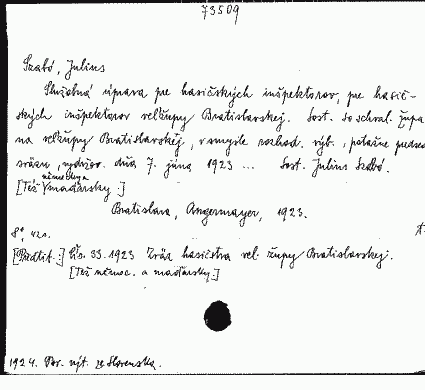 73509
Szabó, Julius
Služobná úprava pre hasičských inšpektorov, pre hasič-
ských inšpektorov veľžupy Bratislavskej. Sost. so schval. župa
na veľžupy Bratislavskej, v smysle rozhod. výb., potažne predsed
vydržov. dňa 7. júna 1923 ... Sost. Julius Szabó.
[Též německy a maďarsky.]
Bratislava, Angermayer, 1923.
8°, 42 s.
[Podtit.:] Čís. 33. 1923 Zväz hasičstva vel. župy Bratislavskej.
[Též němec. a maďarsky.]
1924. Por. výt. ze Slovenska.